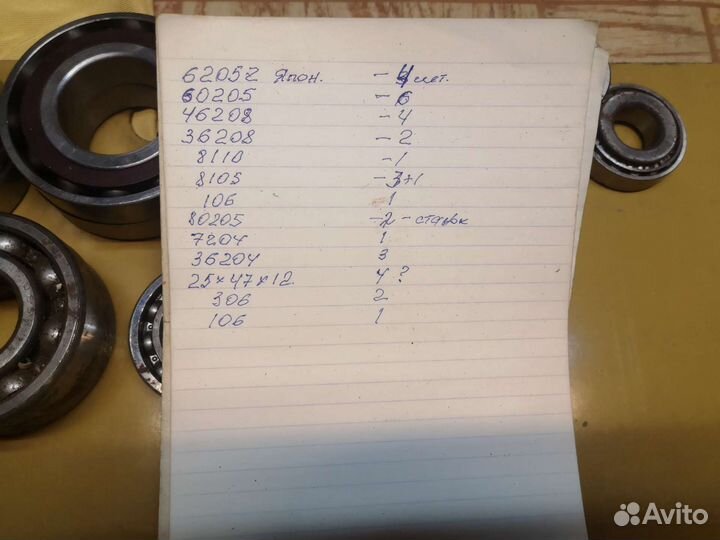 6205Z Япон. - 4 шт.
60205 - 6
46208 - 4
36208 - 2
8110 - 1
8105 - 3+1
106 1
80205 - 2 -
7204 1
36204 3
25×47×12. 4 ?
306 2
106 1
Avito